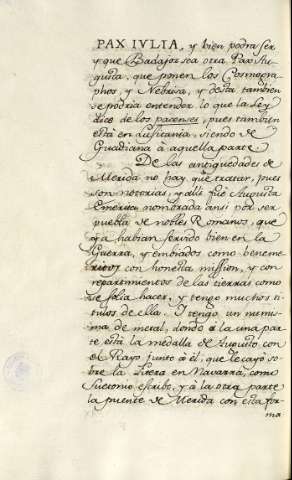 PAX IVLIA, y bien podra ser
y que Badajoz sea otra Pax Au
gusta, que ponen los Cosmogra
phos, y Nebrisa, y desta tambien
se podria entender lo que la Ley
dice de los pacenses, pues tambien
está en Lusitania, siendo de
Guadiana à aquella parte
De las antiguedades de
Merida no hay que tratar, pues
son notorias, y alli fué Augusta
Emerita nombrada ansi por ser
puebla de nobles Romanos, que
ya habian servido bien en la
Guerra, y embiados como beneme
ritos con honesta mission, y con
repartimientos de las tierras como
se solia hacer, y tengo muchos ti
tulos de ello. Y tengo un numis
ma de metal, donde à la una par
te está la medalla de Augusto con
el Rayo junto à él, que le cayó so
bre la Litera en Navarra, como
Suetonio escribe, y à la otra parte
la puente de Merida con esta for
ma